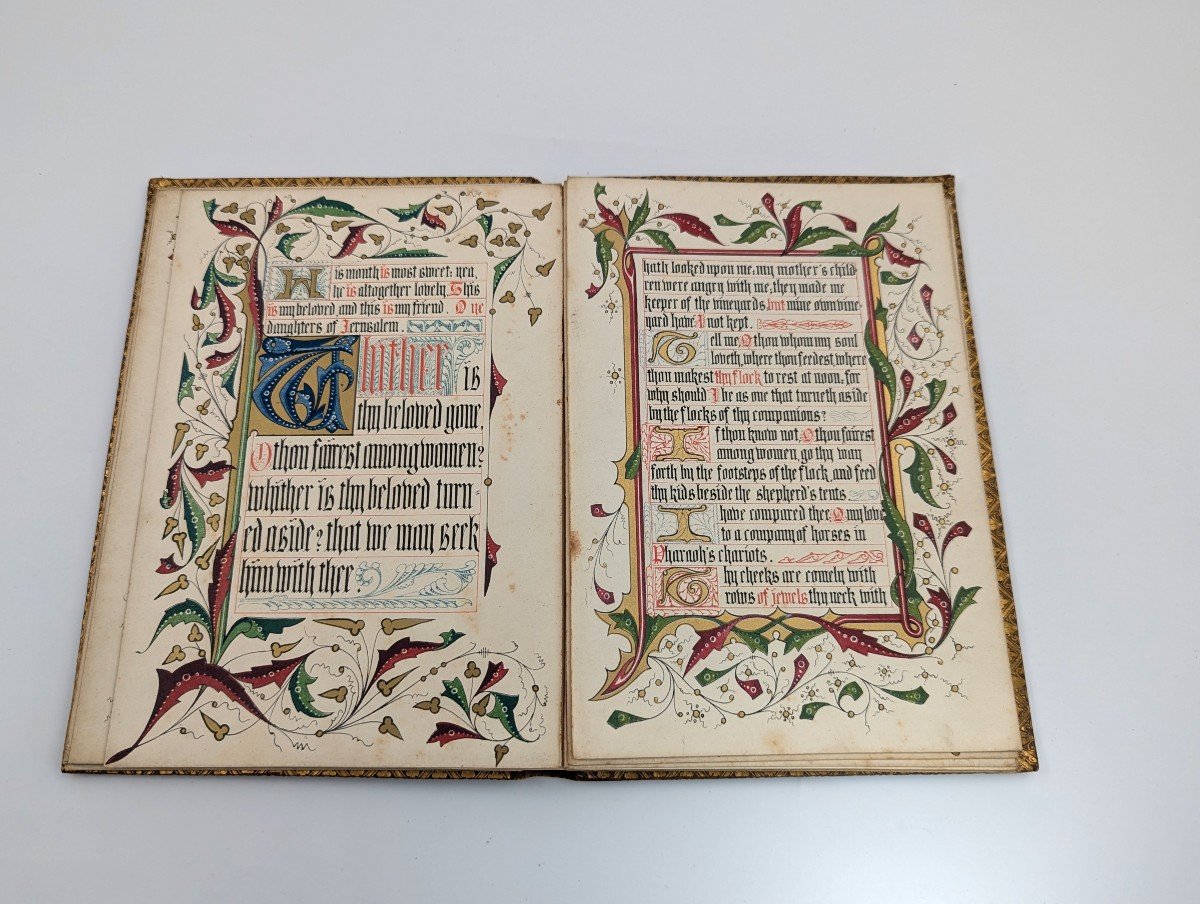 His mouth is most sweet: yea,
he is altogether lovely. This
is my beloved and this is my friend. O ye
daughters of Jerusalem.
Whither is
thy beloved gone,
O thou fairest among women?
whither is thy beloved turn-
ed aside? that we may seek
him with thee.
hath looked upon me; my mother's child-
ren were angry with me; they made me
keeper of the vineyards but mine own vine-
yard have I not kept.
Tell me, O thou whom my soul
loveth, where thou feedest where
thou makest thy flock to rest at noon, for
why should I be as one that turneth aside
by the flocks of thy companions?
If thou know not O thou fairest
among women, go thy way
forth by the footsteps of the flock, and feed
thy kids beside the shepherd's tents
I have compared thee, O my love
to a company of horses in
Pharaoh's chariots.
Thy cheeks are comely with
rows of jewels thy neck with